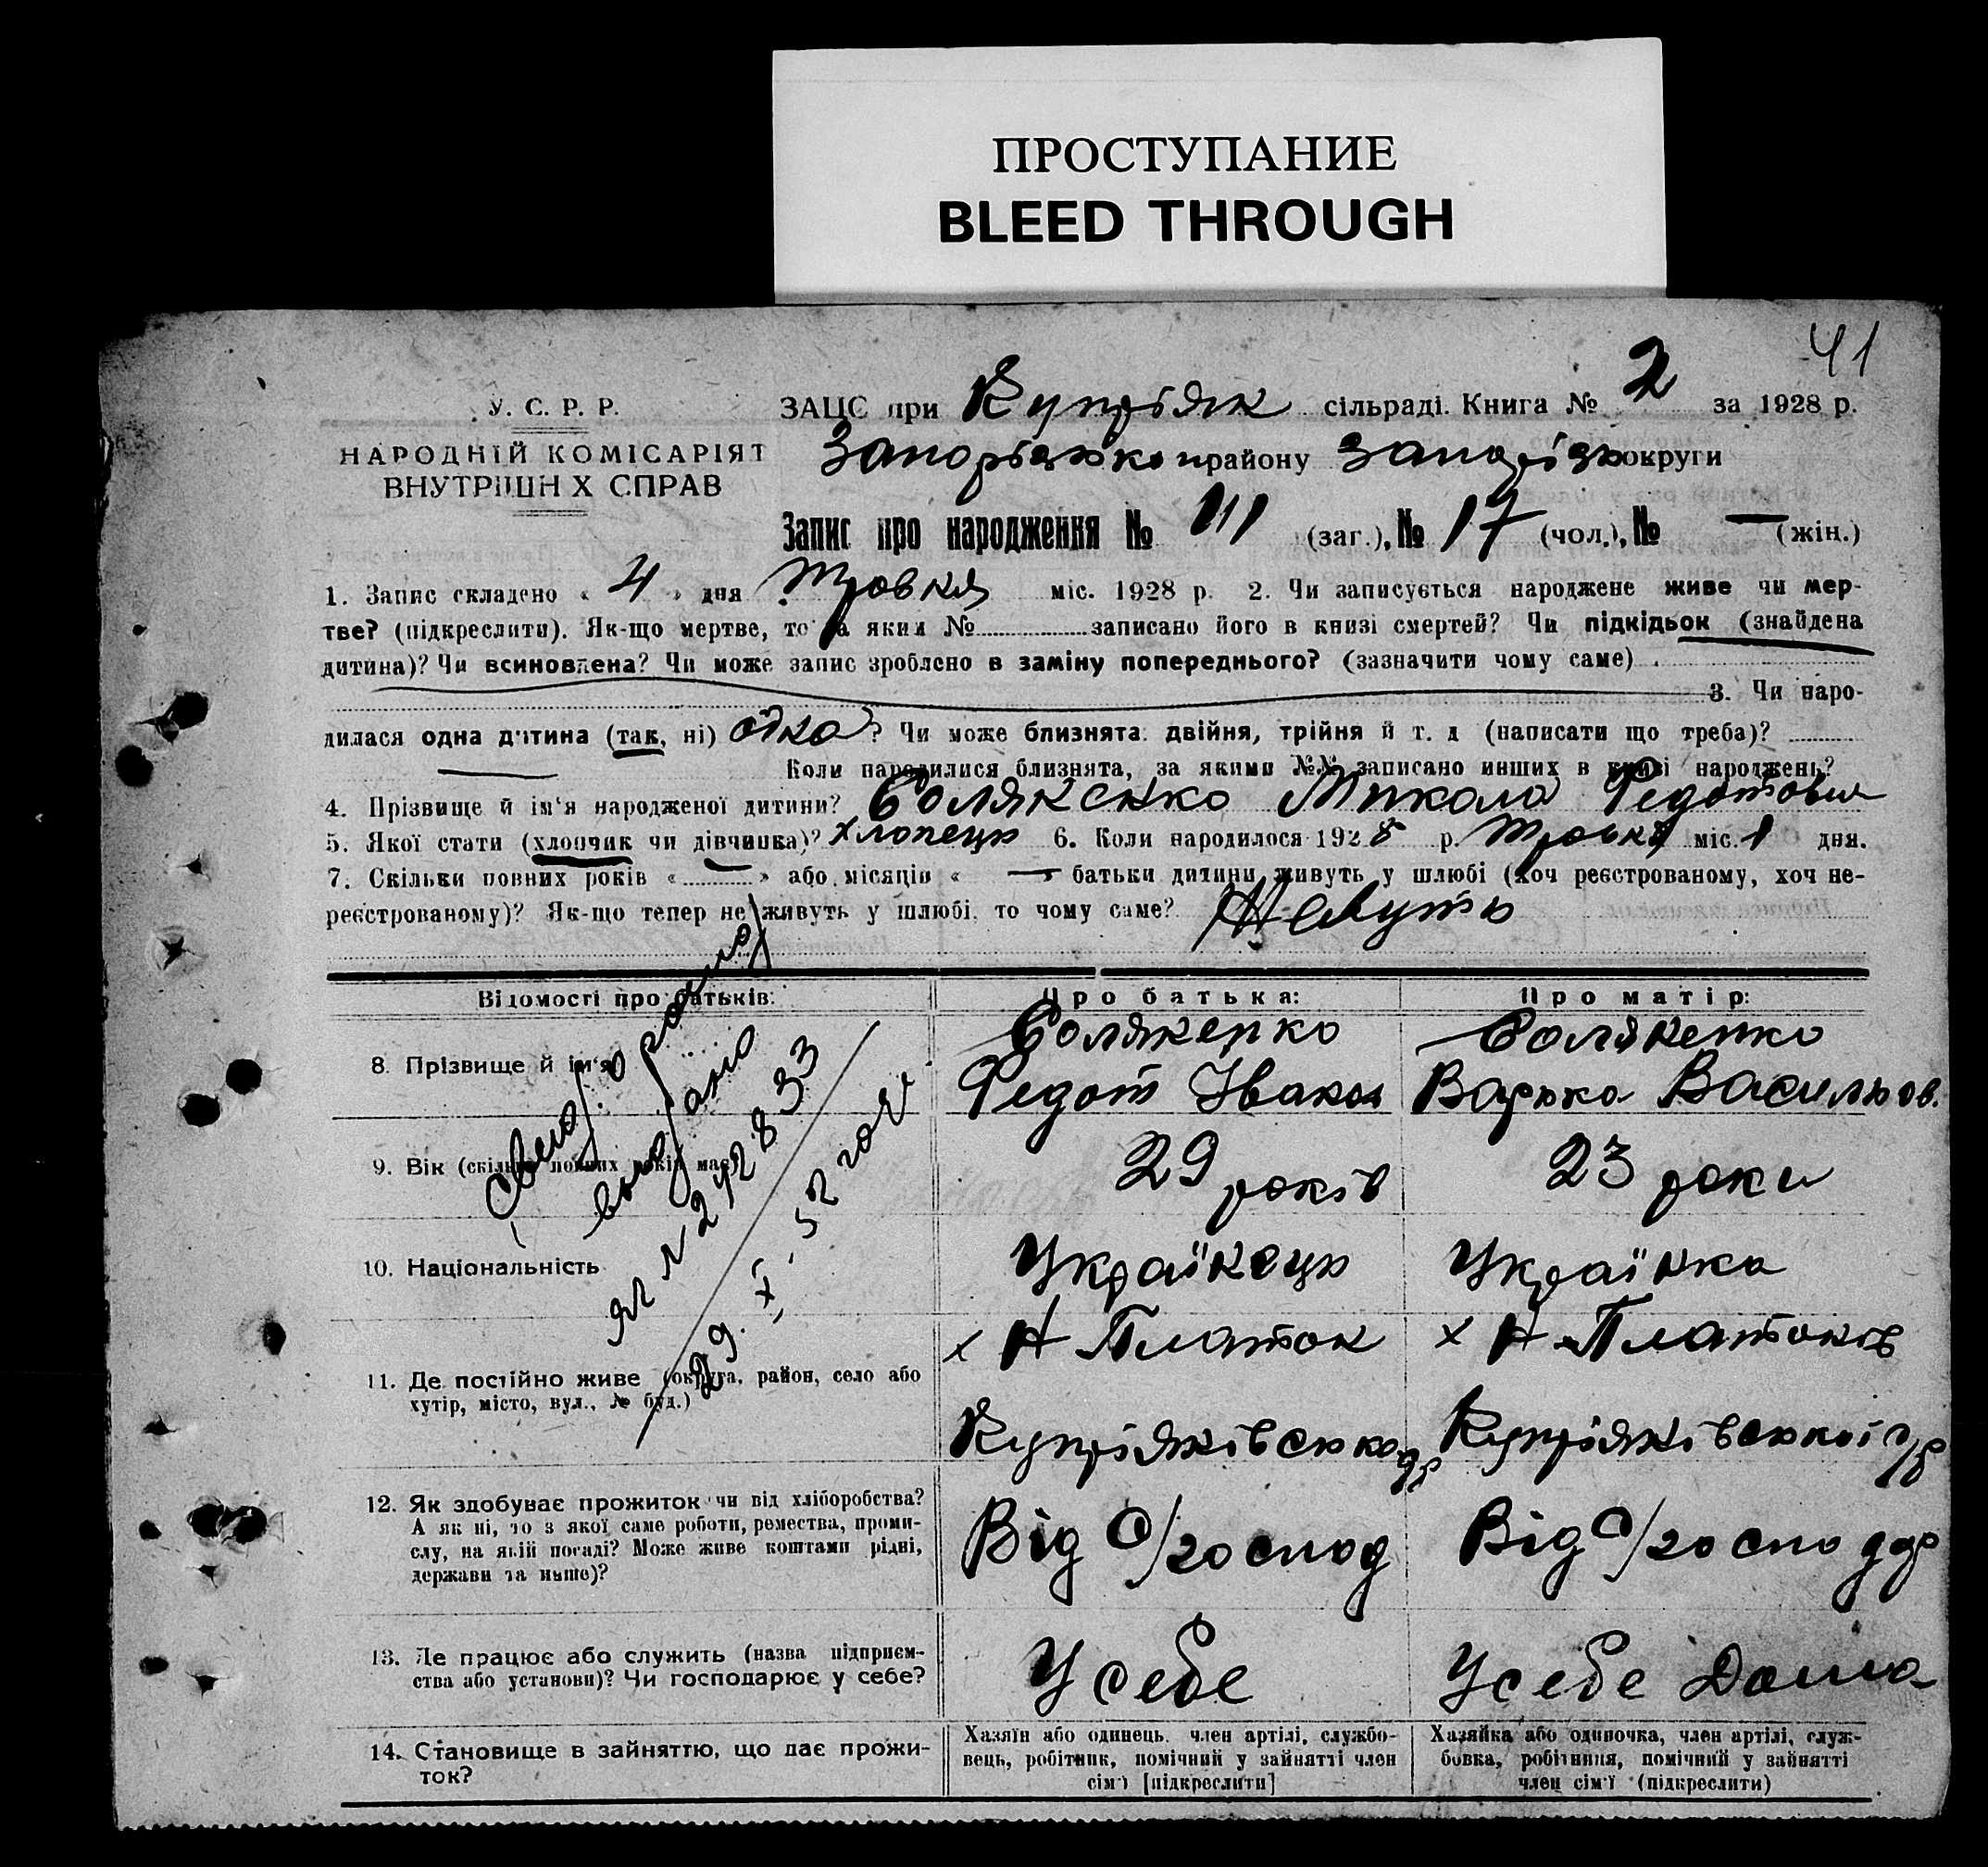 ПРОСТУПАНИЕ
BLEED THROUGH
41
У. С. Р. Р.
НАРОДНІЙ КОМІСАРІЯТ
ВНУТРІШНІХ СПРАВ
ЗАЦС при Купріян сільраді. Книга № 2 за 1928 р.
Запорізько району Запоріз округи
Запис про народження № (заг.), № 17 (чол.), № — (жін.)
1. Запис складено « 4 » дня Травня міс. 1928 р. 2. Чи записується народжене живе чи мер-
тве? (підкреслити). Як-що мертве, то за яким № записано його в книзі смертей? Чи підкідьок (знайдена
дитина)? Чи всиновлена? Чи може запис зроблено в заміну попереднього? (зазначити чому саме)
3. Чи наро-
дилася одна дитина (так, ні) одна? Чи може близнята: двійня, трійня й т. д (написати що треба)?
Коли народилися близнята, за якими №№ записано инших в книзі народжень?
4. Прізвище й ім'я народженої дитини? Солякенко Микола Федотович
5. Якої стати (хлопчик чи дівчинка)? Хлопець 6. Коли народилося 1928 р. Травня міс. 1 дня.
7. Скільки повних років « — » або місяців « — батьки дитини живуть у шлюбі (хоч реєстрованому, хоч не-
реєстрованому)? Як-що тепер не живуть у шлюбі, то чому саме? Живуть
Відомості про батьків:
Про батька:
Про матір:
8. Прізвище й ім'я
Солякенко
Федот Іванов
Солякенко
Варька Васильов.
9. Вік (скільки повних років має)
29 років
23 роки
10. Національність
Українець
Українка
11. Де постійно живе (округа, район, село або
хутір, місто, вул., № буд.)
х Н Платон
Купріянівсько
х Н Платонів
Купріянівської
12. Як здобуває прожиток чи від хліборобства?
А як ні, то з якої саме роботи, ремества, проми-
слу, на якій посаді? Може живе коштами рідні,
держави та инше)?
Від С/господ
Від С/господар
13. Де працює або служить (назва підприєм-
ства або установи)? Чи господарює у себе?
У себе
У себе Дома
14. Становище в зайняттю, що дає прожи-
ток?
Хазяїн або одинець, член артілі, службо-
вець, робітник, помічний у зайнятті член
сім'ї [підкреслити]
Хазяйка або одиночка, член артілі, служ-
бовка, робітниця, помічний у зайнятті
член сім'ї (підкреслити)
29. X. 52 года